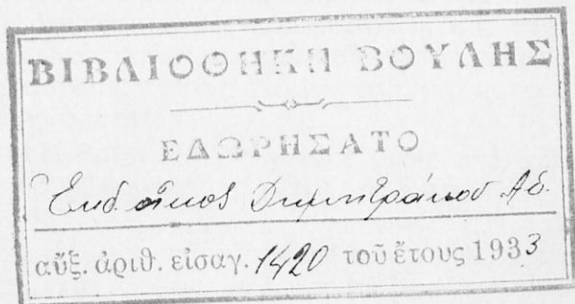 ΒΙΒΛΙΟΘΗΚΗ ΒΟΥΛΗΣ
ΕΔΩΡΗΣΑΤΟ
Ἐκδ. οἶκος Δημητράκου Α.Ε.
αὔξ. ἀριθ. εἰσαγ. 1420 τοῦ ἔτους 1933